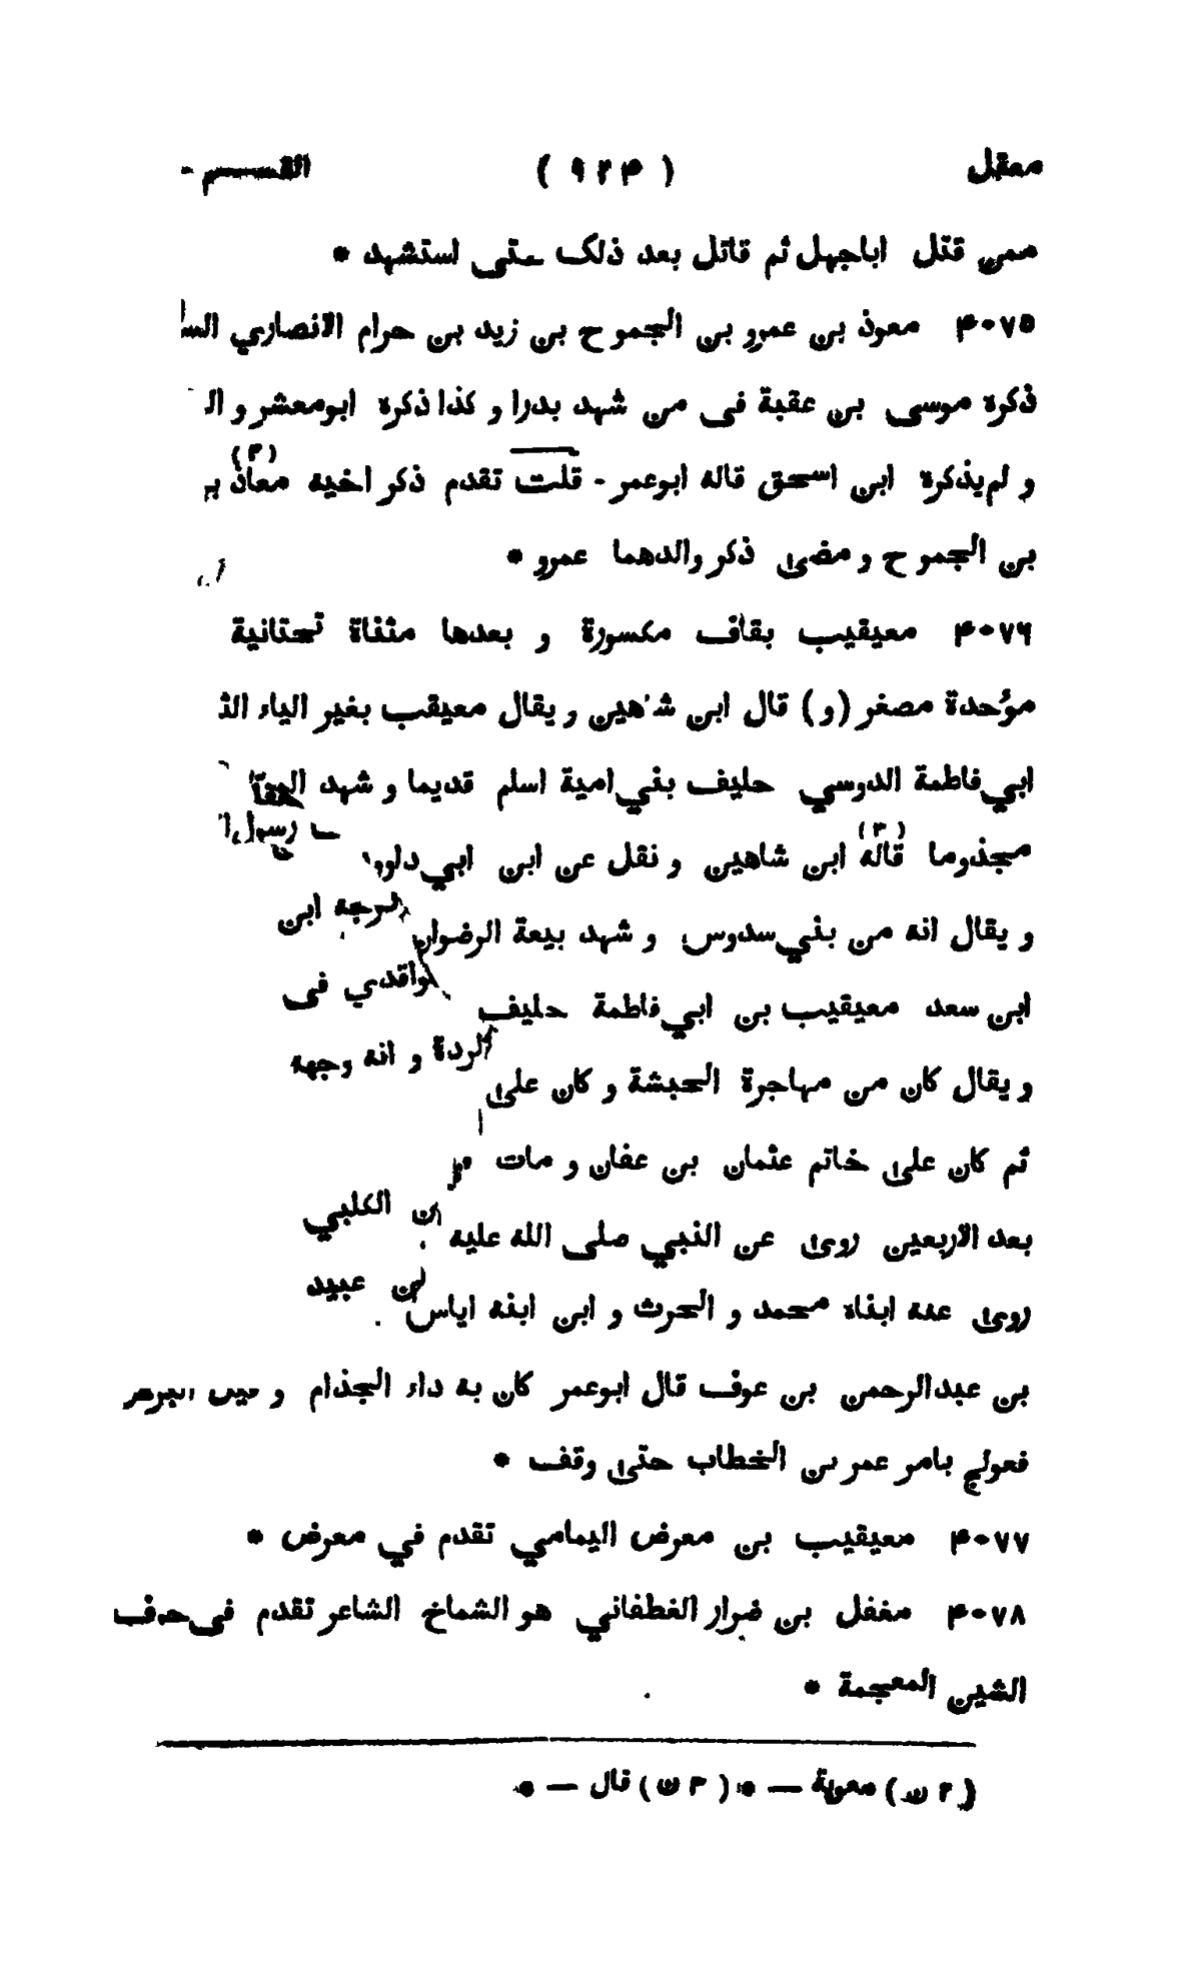 معقل ( ۹۲۴ ) القسم -
ممن قتل اباجهل ثم قاتل بعد ذلك حتى استشهد *
۴۰۷۵ معوذ بن عمرو بن الجموح بن زيد بن حرام الانصاري
ذكره موسى بن عقبة في من شهد بدرا و كذا ذكره ابومعشر و
و لم يذكره ابن اسحق قاله ابوعمر - قلت تقدم ذكر اخيه معاذ (۲)
بن الجموح و مضى ذكر والدهما عمرو *
۴۰۷۶ معيقيب بقاف مكسورة و بعدها مثناة تحتانية
موحدة مصغر (و) قال ابن شاهين و يقال معيقب بغير الياء
ابي فاطمة الدوسي حليف بني امية اسلم قديما و شهد
مجذوما قاله (۳) ابن شاهين و نقل عن ابن ابي داود
و يقال انه من بني سدوس و شهد بيعة الرضوان ابن
ابن سعد معيقيب بن ابي فاطمة حليف واقدي في
و يقال كان من مهاجرة الحبشة و كان على الردة و انه وجهه
ثم كان على خاتم عثمان بن عفان و مات
بعد الاربعين روى عن النبي صلى الله عليه الكلبي
روى عنه ابناه محمد و الحرث و ابن ابنه اياس بن عبيد
بن عبدالرحمن بن عوف قال ابوعمر كان به داء الجذام و
فعولج بامر عمر بن الخطاب حتى وقف *
۴۰۷۷ معيقيب بن معرض اليمامي تقدم في معرض *
۴۰۷۸ مغفل بن ضرار الغطفاني هو الشماخ الشاعر تقدم في حرف
الشين المعجمة *
(۲ ن) معوية — * (۳ ن) قال — *